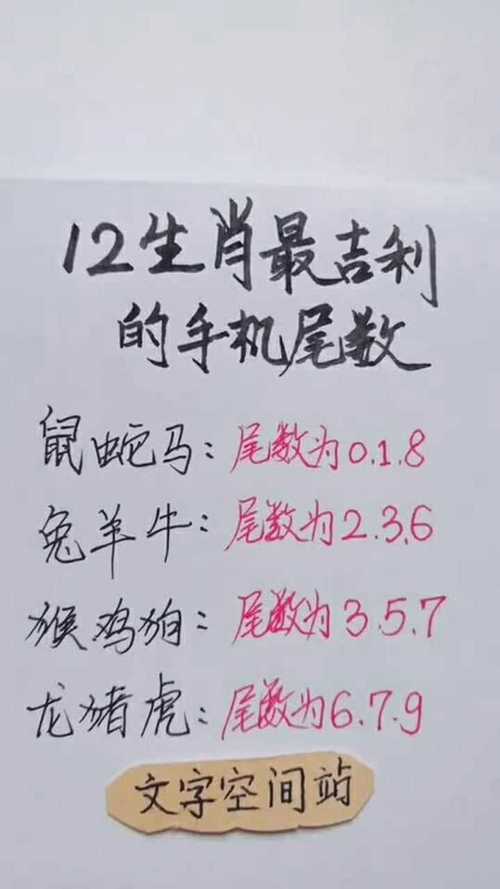 12生肖最吉利
的手机尾数
鼠蛇马：尾数为0.1.8
兔羊牛：尾数为2.3.6
猴鸡狗：尾数为3.5.7
龙猪虎：尾数为6.7.9
文字空间站